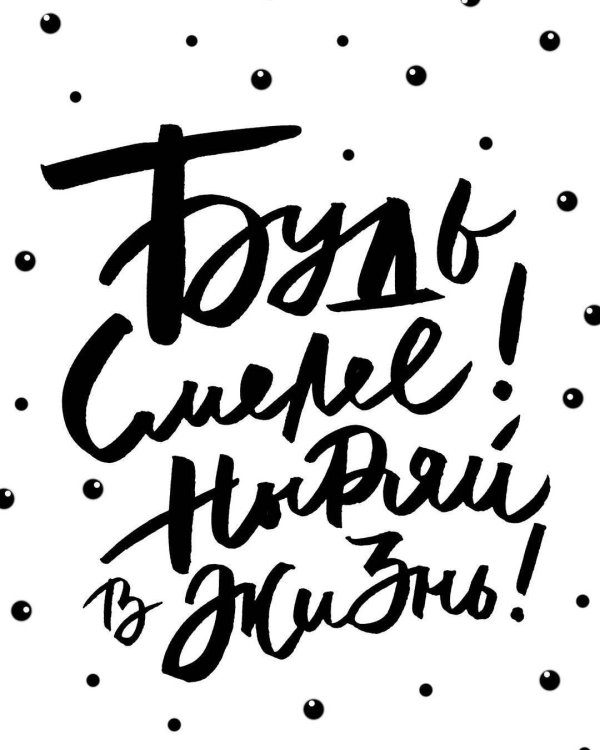 Будь
Смелее!
Ныряй
в Жизнь!